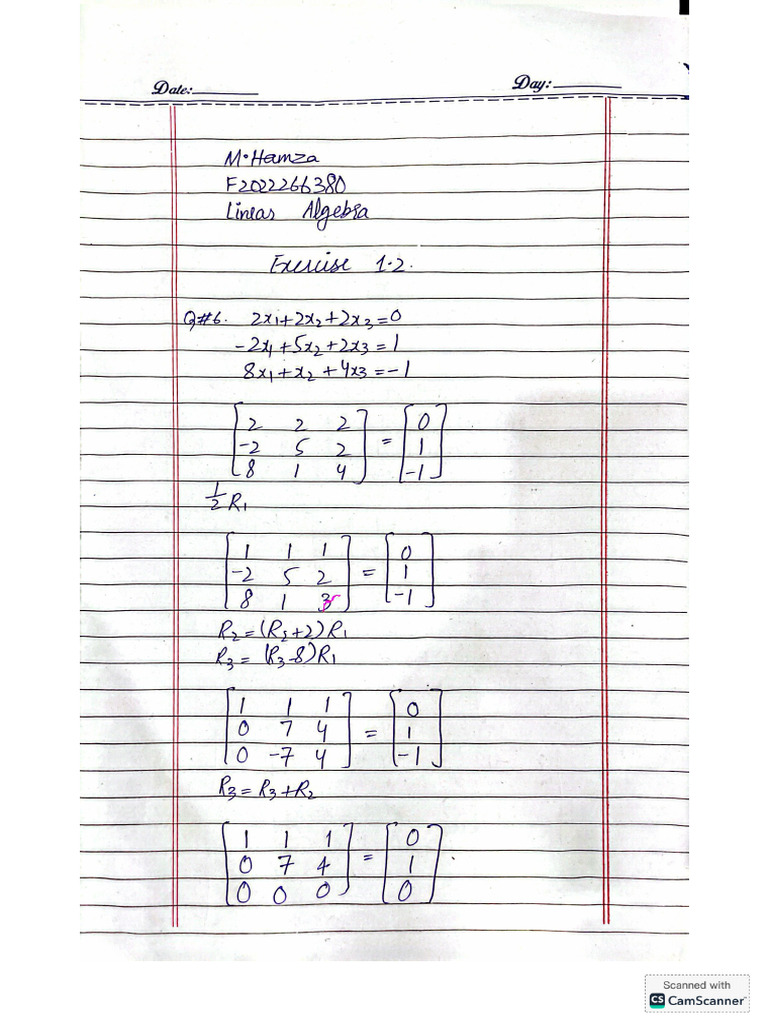 Date:
Day:
M. Hamza
F2022266380
Linear Algebra
Exercise 1.2.
Q#6. 2x1+2x2+2x3=0
-2x1+5x2+2x3=1
8x1+x2+4x3=-1
[2 2 2] = [0]
[-2 5 2] [1]
[8 1 4] [-1]
1/2 R1
[1 1 1] = [0]
[-2 5 2] [1]
[8 1 ] [-1]
R2=(R2+2)R1
R3=(R3-8)R1
[1 1 1] = [0]
[0 7 4] [1]
[0 -7 4] [-1]
R3=R3+R2
[1 1 1] = [0]
[0 7 4] [1]
[0 0 0] [0]
Scanned with
CS CamScanner